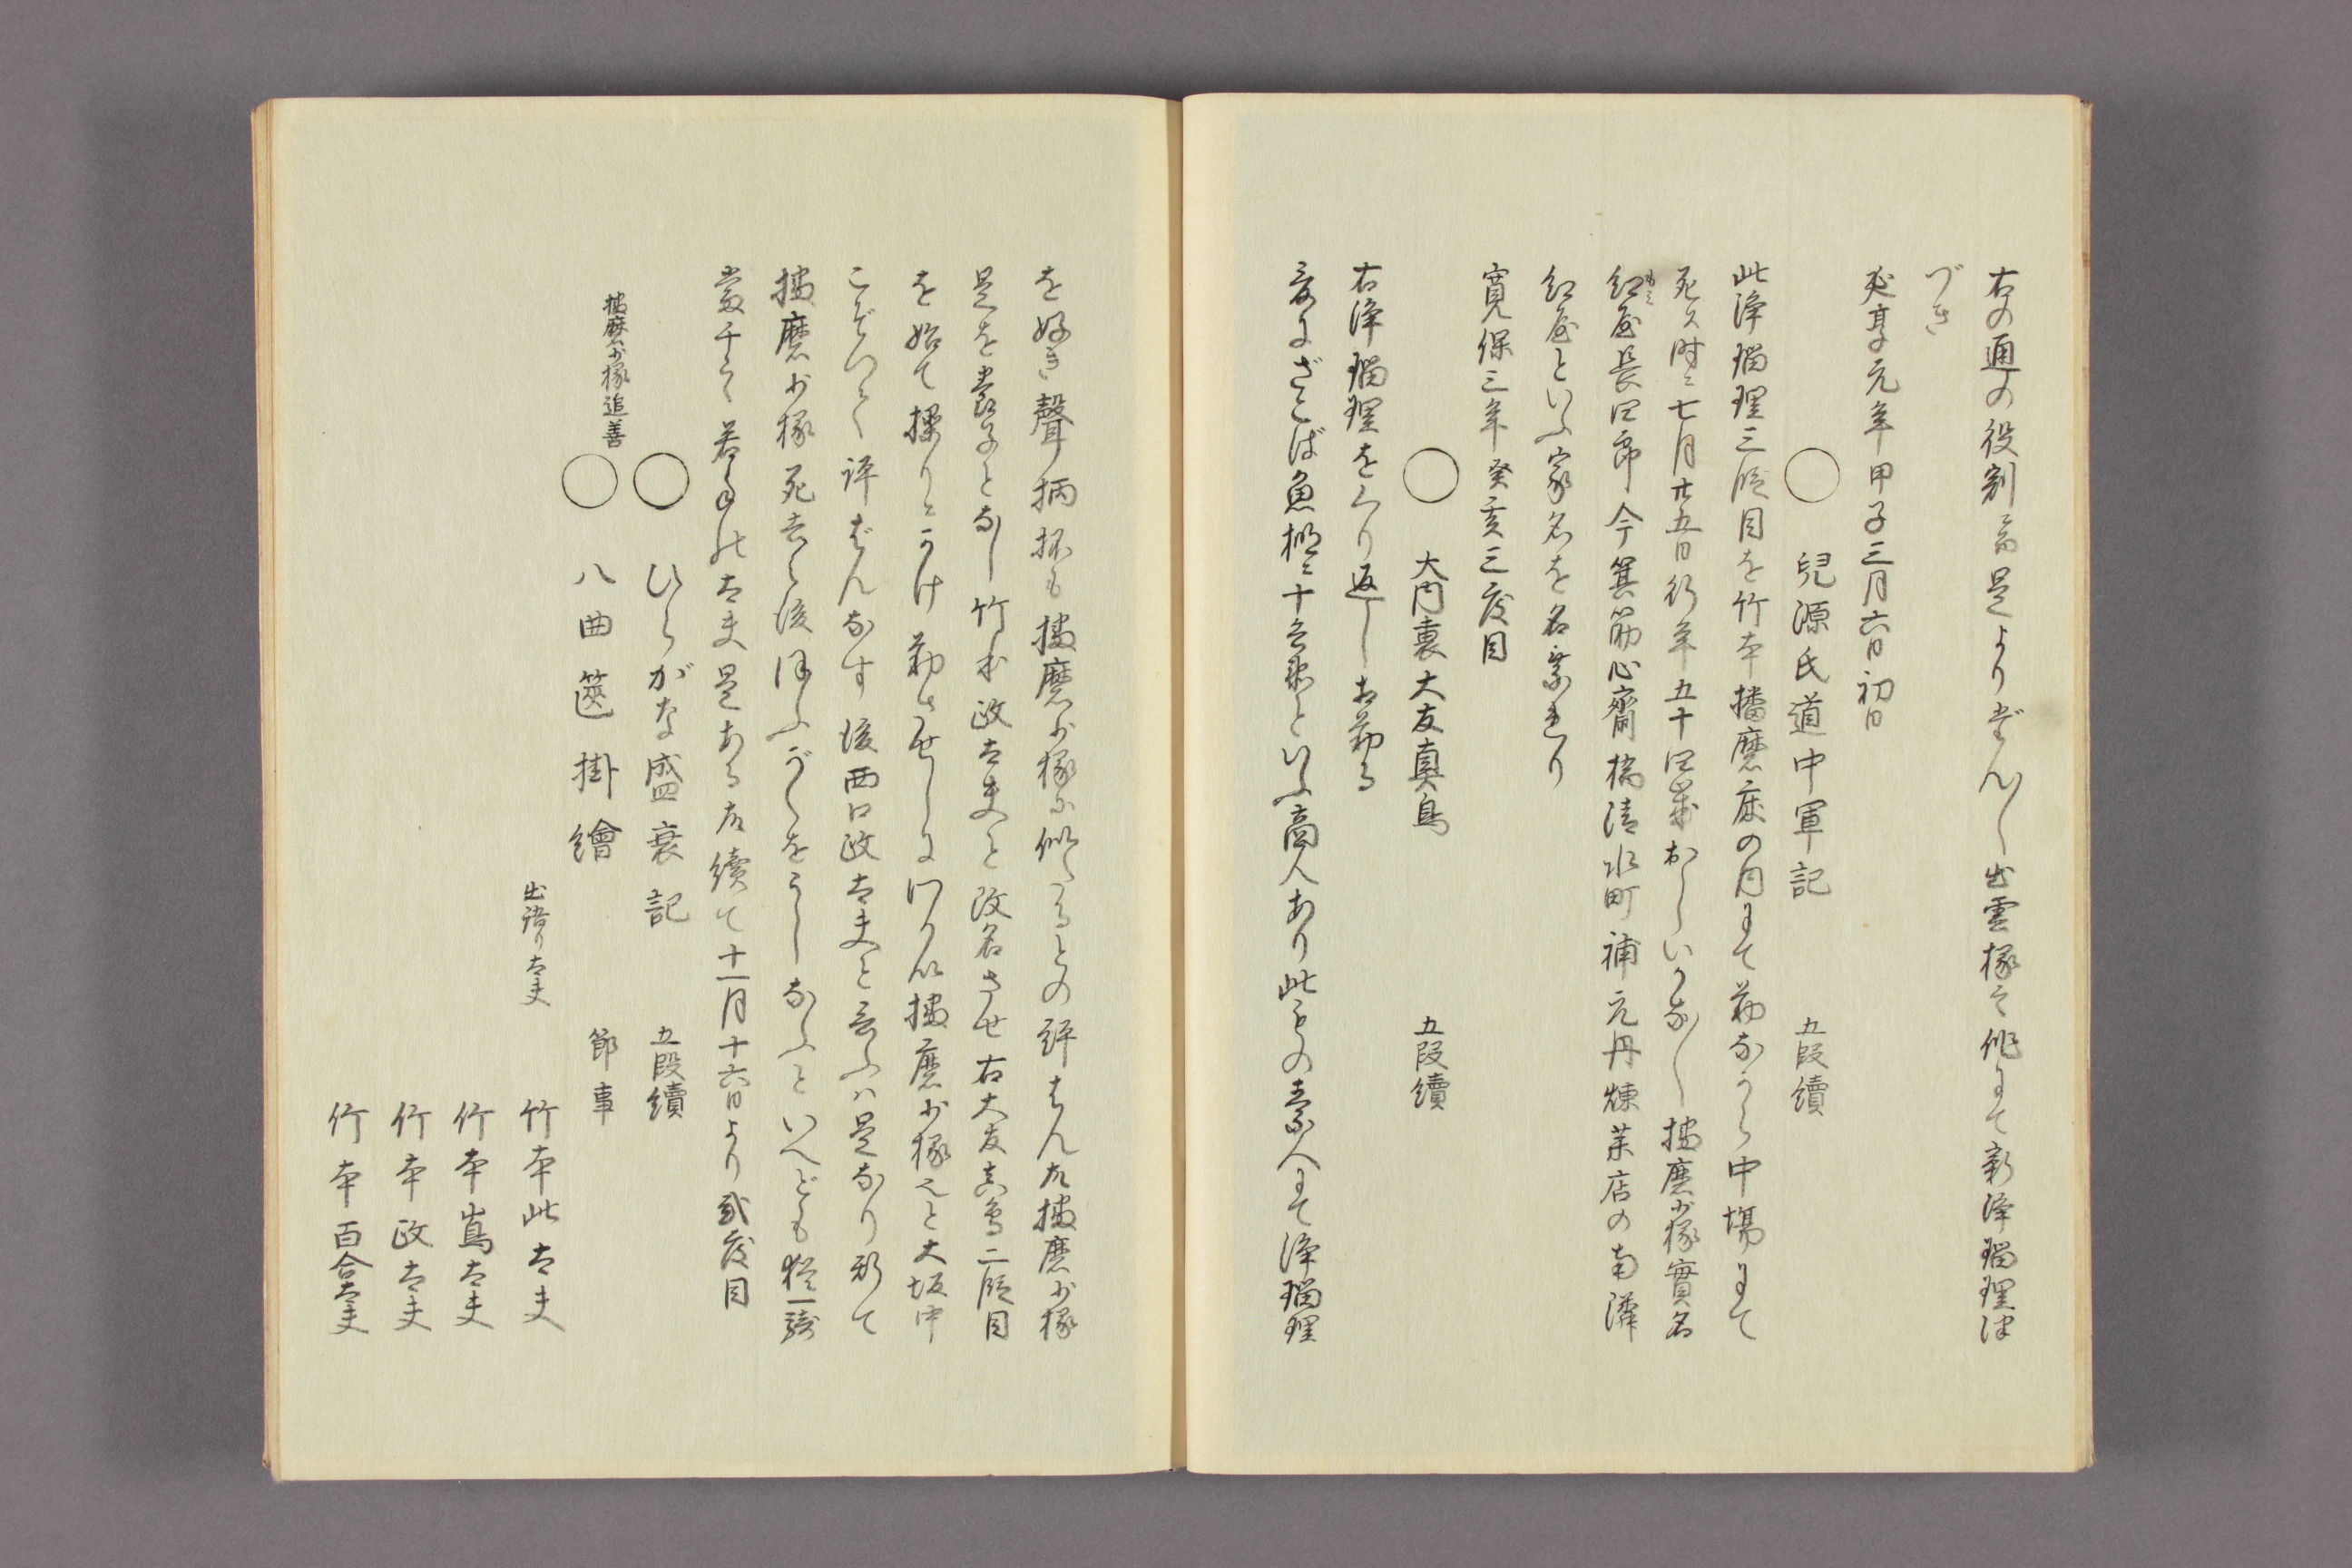 右の通の役割ニ而是よりだん〳〵出雲掾之作にて新浄瑠理つ
づき
延享元年甲子三月六日初日
○ 兒源氏道中軍記 五段續
此浄瑠理三段目を竹本播磨床の内にて勤ながら中場にて
死ス時ニ七月廿五日行年五十四歳おしいかな〳〵播磨少掾實名
紅屋長四郎今箕筋心齋橋清水町補元丹煉茶店の南隣
もみ
紅屋といふ家名を名乗れり
寛保三年癸亥三度目
○ 大内裏大友真鳥 五段續
右浄瑠理をくり返しお勤る
爰にざこば魚棚ニ十兵衛といふ商人あり此もの素人にて浄瑠理
を好き聲柄抔も播磨少掾に似たるとの評ばん故播磨少掾
是を養子となし竹本政太夫と改名させ右大友真鳥二段目
を始て操りニかけ勤させしに いか播磨少掾也と大坂中
こぞつて評ばんなす後西口政太夫と言ふハ是なり新て
播磨少掾死去し後 をうしなふといへども 一騎
當千 若手の太夫是ある故續て十一月十六日より弐度目
○ ひらがな盛衰記 五段續
播磨少掾追善
○ 八曲筐掛繪 節事
出語り太夫 竹本此太夫
竹本嶌太夫
竹本政太夫
竹本百合太夫